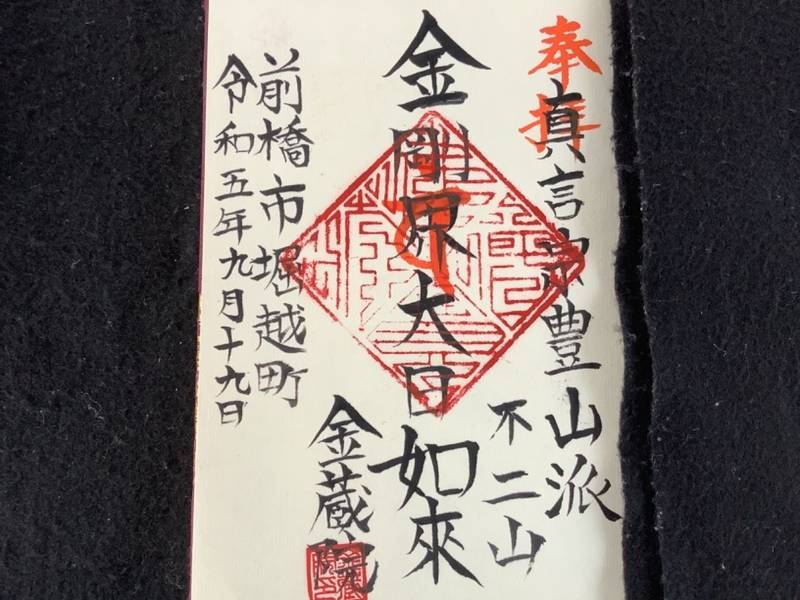 奉拝
真言宗豊山派
不二山
金剛界大日如來
金蔵院
前橋市堀越町
令和五年九月十九日